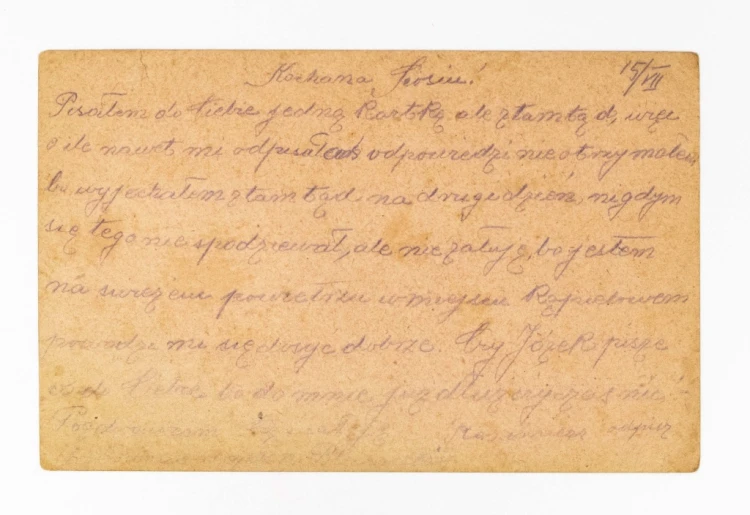 15/VII
Kochana Zosiu!
Pisałem do Ciebie jedną Kartkę ale ztamtąd, więc
o ile nawet mi odpisałaś odpowiedzi nie otrzymałem
bo wyjechałem ztamtąd na drugi dzień, nigdym
się tego nie spodziewał, ale nie żałuję, bo jestem
na świeżem powietrzu w miejscu Kąpielowem
powodzi mi się dosyć dobrze. Czy Józek pisze
do Ciebie bo do mnie już dłuższy czas nie
Kazimierz